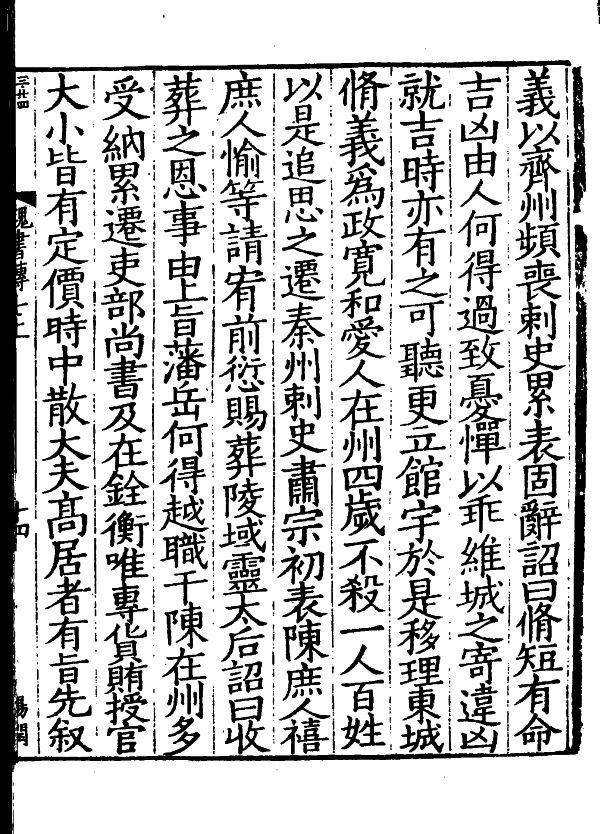 義以齊州頻喪刺史累表固辭詔曰脩短有命
吉凶由人何得過致憂憚以乖維城之寄違凶
就吉時亦有之可聽更立館宇於是移理東城
脩義爲政寛和愛人在州四歲不殺一人百姓
以是追思之遷秦州刺史肅宗初表陳庶人禧
庶人愉等請宥前愆賜葬陵域靈太后詔曰收
葬之恩事由上旨藩岳何得越職干陳在州多
受納累遷吏部尚書及在銓衡唯專貨賄授官
大小皆有定價時中散大夫髙居者有旨先叙
三廿四
魏書傳七上
十四